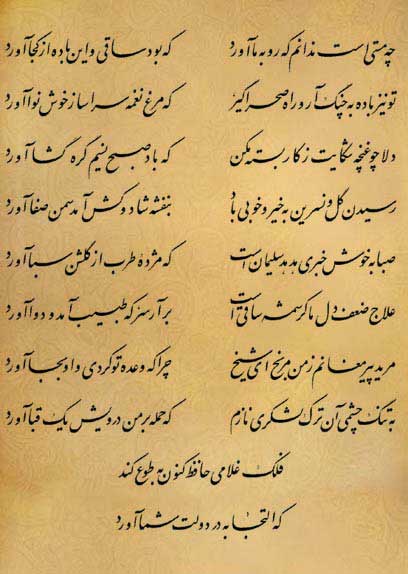 چه مستی است ندانم که رو به ما آورد که بود ساقی و این باده از کجا آورد
تو نیز باده به چنگ آر و راه صحرا گیر که مرغ نغمه سرا ساز خوش نوا آورد
دلا چو غنچه شکایت ز کار بسته مکن که باد صبح نسیم گره گشا آورد
رسیدن گل و نسرین به خیر و خوبی باد بنفشه شاد و کش آمد سمن صفا آورد
صبا به خوش خبری هدهد سلیمان است که مژده طرب از گلشن سبا آورد
علاج ضعف دل ما کرشمه ساقی است برآر سر که طبیب آمد و دوا آورد
مرید پیر مغانم ز من مرنج ای شیخ چرا که وعده تو کردی و او بجا آورد
به تنگ چشمی آن ترک لشکری نازم که حمله بر من درویش یک قبا آورد
فلک غلامی حافظ کنون به طوع کند
که التجا به در دولت شما آورد